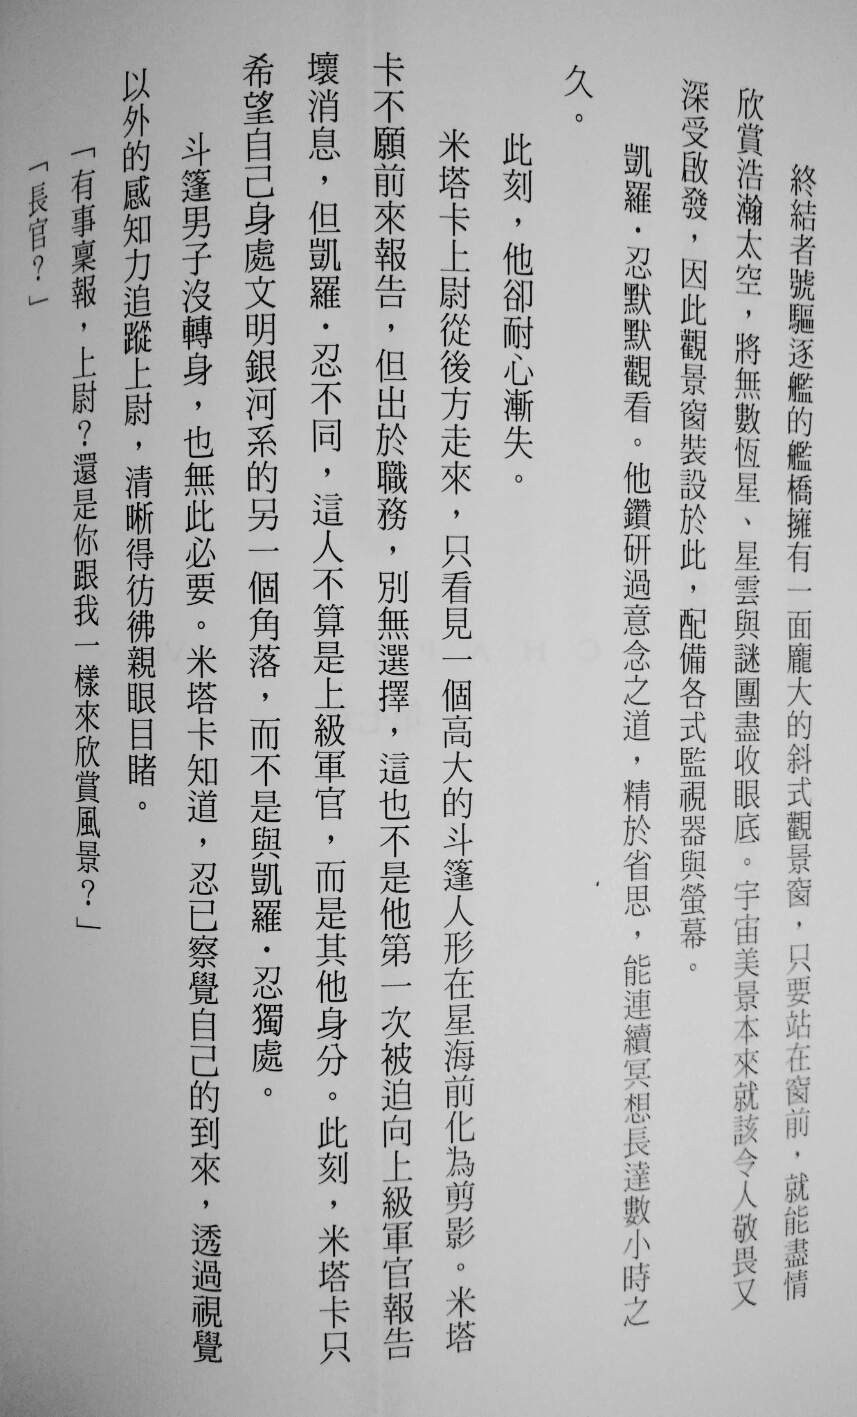 終結者號驅逐艦的艦橋擁有一面龐大的斜式觀景窗，只要站在窗前，就能盡情
欣賞浩瀚太空，將無數恆星、星雲與謎團盡收眼底。宇宙美景本來就該令人敬畏又
深受啟發，因此觀景窗裝設於此，配備各式監視器與螢幕。
凱羅·忍默默觀看。他鑽研過意念之道，精於省思，能連續冥想長達數小時之
久。
此刻，他卻耐心漸失。
米塔卡上尉從後方走來，只看見一個高大的斗篷人形在星海前化為剪影。米塔
卡不願前來報告，但出於職務，別無選擇，這也不是他第一次被迫向上級軍官報告
壞消息，但凱羅·忍不同，這人不算是上級軍官，而是其他身分。此刻，米塔卡只
希望自己身處文明銀河系的另一個角落，而不是與凱羅·忍獨處。
斗篷男子沒轉身，也無此必要。米塔卡知道，忍已察覺自己的到來，透過視覺
以外的感知力追蹤上尉，清晰得彷彿親眼目睹。
「有事稟報，上尉？還是你跟我一樣來欣賞風景？」
「長官？」